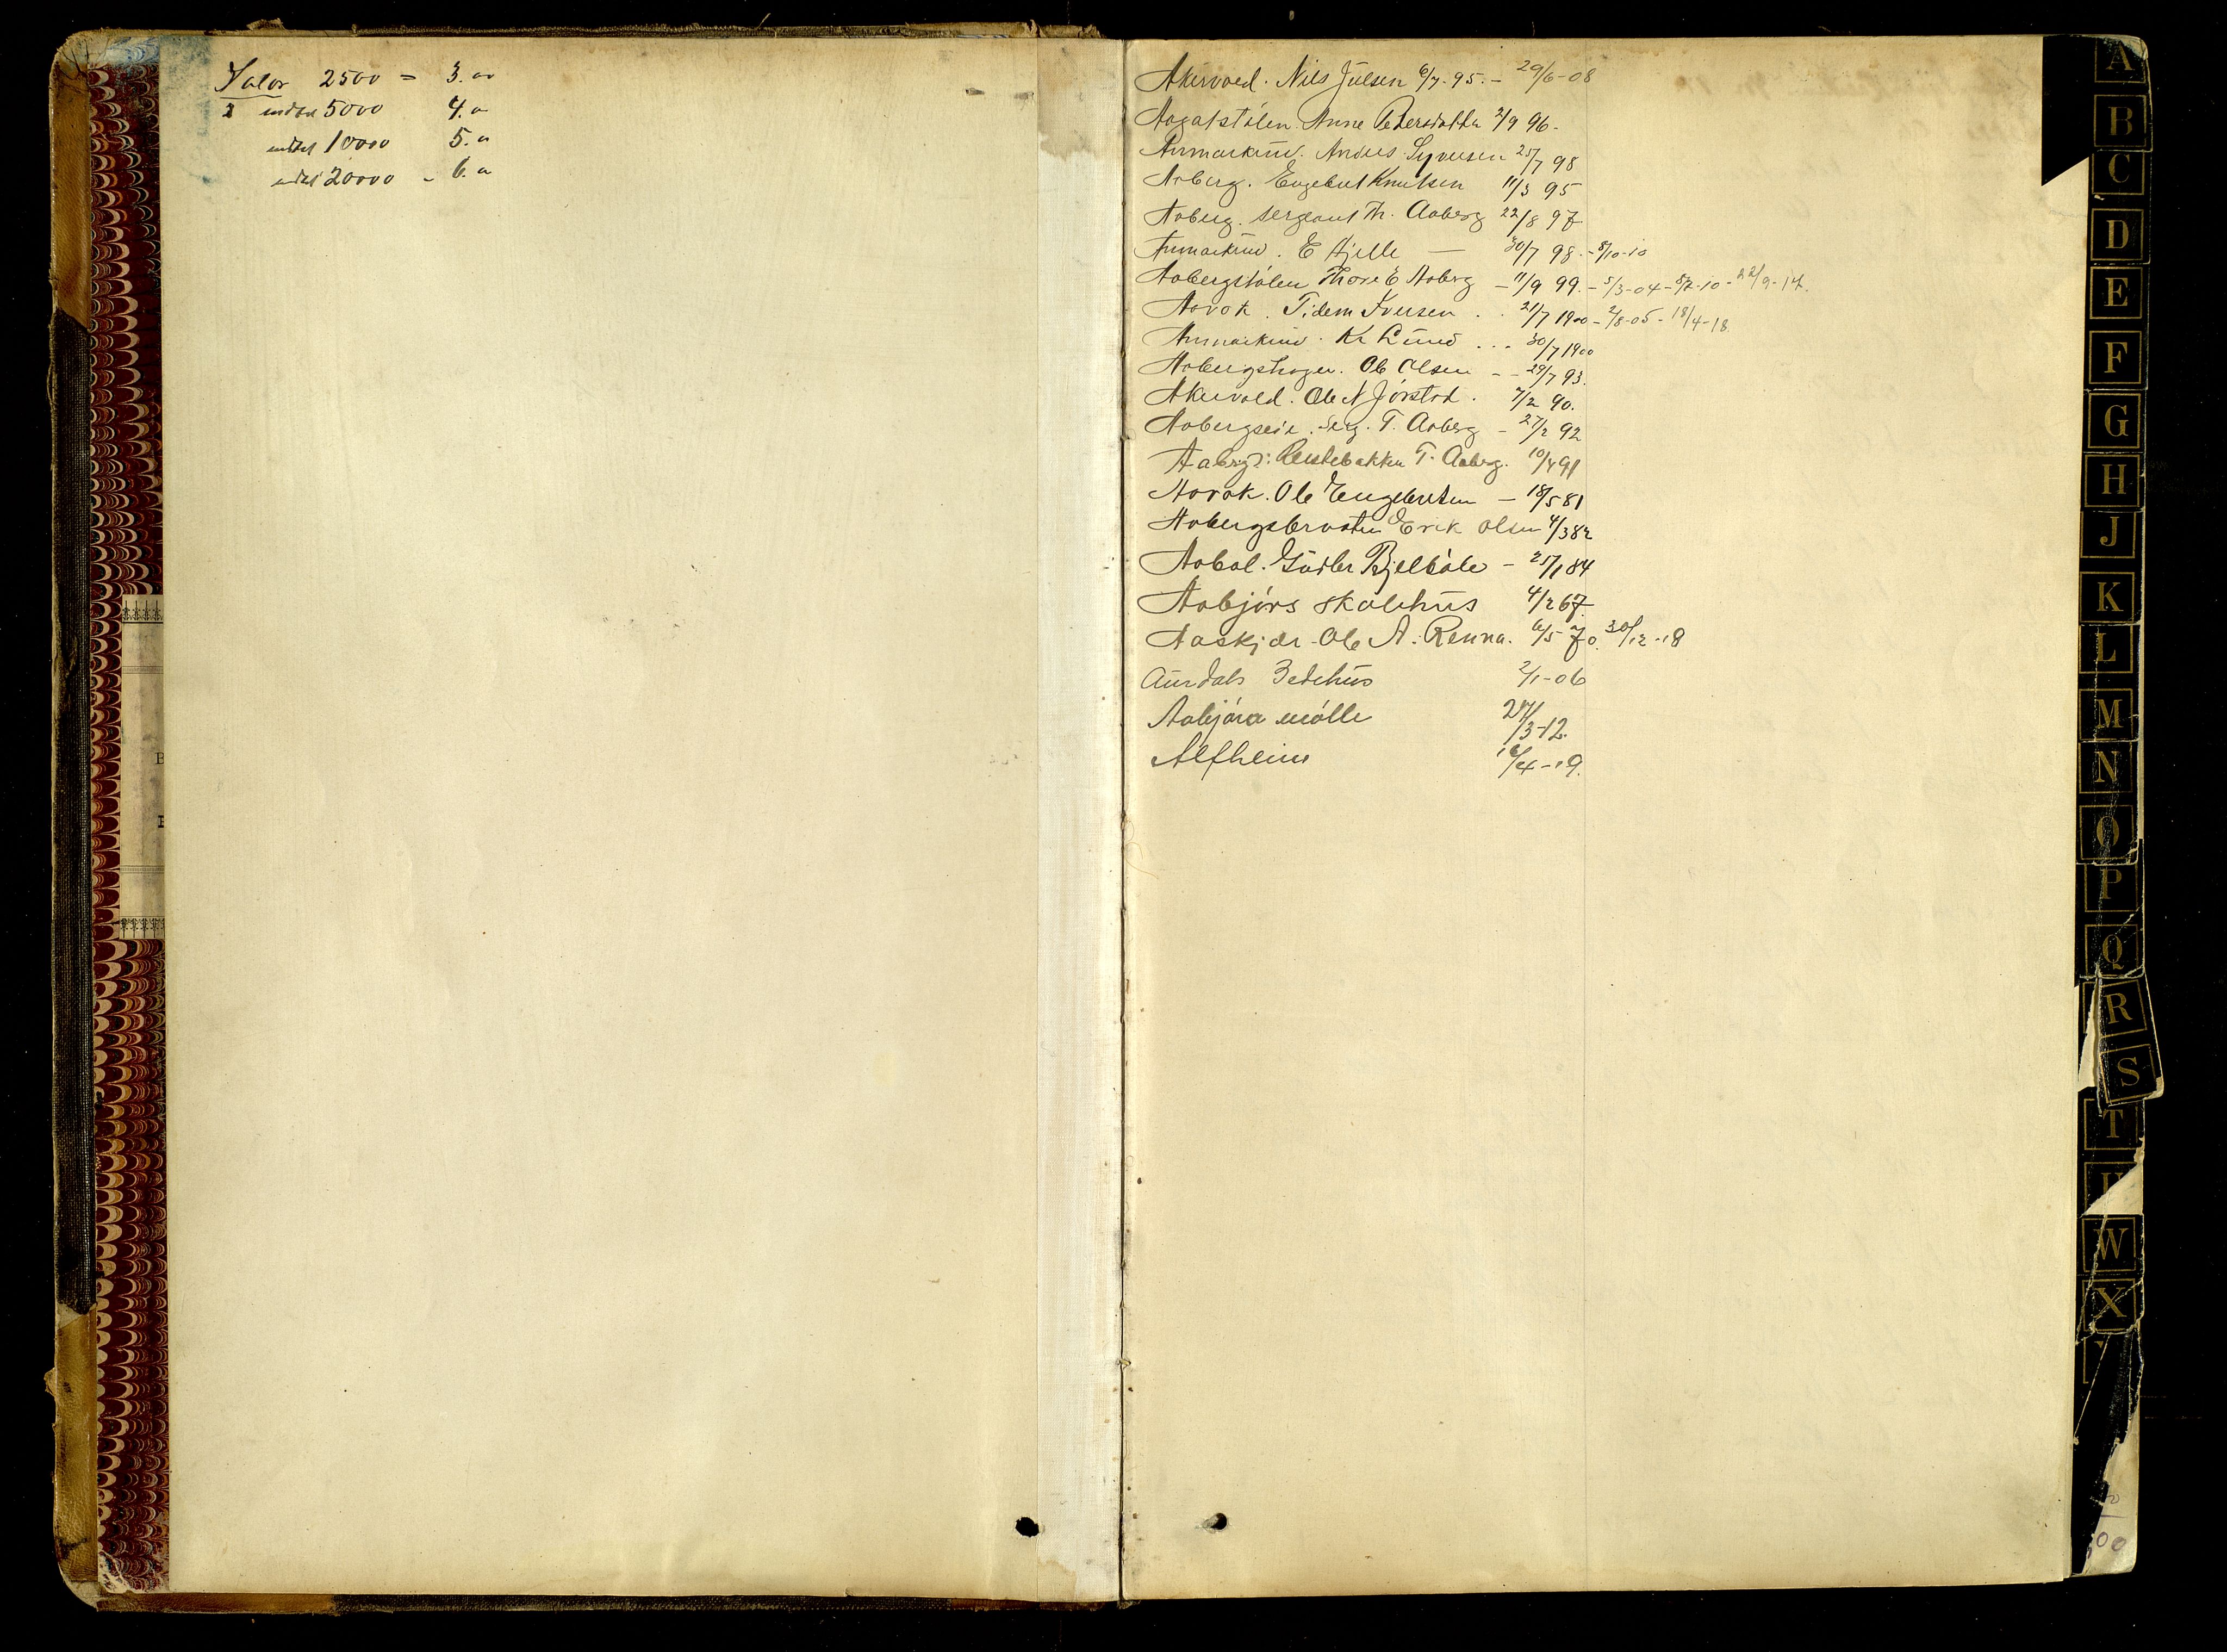 Valør 2500 = 3.00
indtil 5000 4.00
indtil 10000 5.00
indtil 20000 - 6.00
Akervold. Nils Julsen 6/7-95.- 29/6-08
Anne Pedersdatter 2/9 96-
Anmarkrud. Andres Syversen 25/7 98
Aaberg. Engebret Knutsen 11/3 95
Aaberg. Sergeant Th. Aaberg 22/8 97
Anmarkrud. E Hjelle — 30/7 98.-8/10-10
Aabergstølen Thore E Aaberg - 11/9 99.-5/3-04-8/2-10-22/9-14.
Aavok. Tidem Iversen . . 21/7 1900-2/8-05-18/4-18
Anmarkrud. Kr Lund . . . 30/7 1900
Aabergshagen. Ole Olsen - - 29/7 93.
Akervold. Ole N Jørstad. 7/2 90.
Aabergseie. Serg. T. Aaberg - 27/2 92
T. Aaberg. 10/4 91
Aavok. Ole Engebretsen - 18/5 81
Aabergsbraaten Erik Olsen 4/3 82
Aabol. Gudler Bjelbøle - 25/1 84
Aabjørs skolehus 4/2 67
Aaskjær Ole A. Renna. 6/5 70. 30/12-18
Aurdals Bedehus 2/1-06
Aabjøra mølle 27/3-12.
Alfheim 16/4-19.
A
B
C
D
E
F
G
H
J
K
L
M
N
O
P
Q
R
S
T
W
X
00